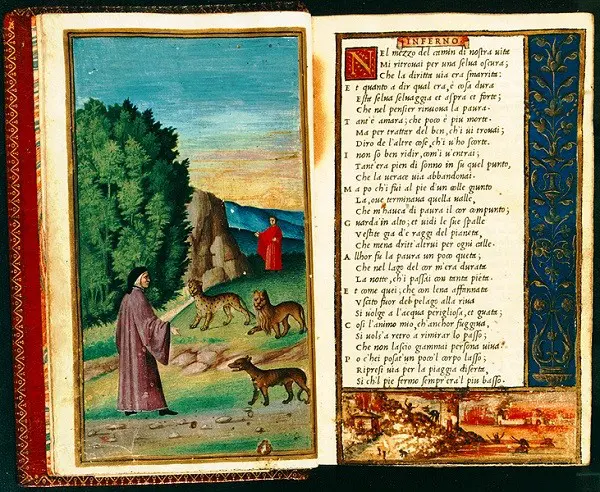 INFERNO
Nel mezzo del camin di nostra uita
Mi ritrouai per una selua oscura;
Che la diritta uia era smarrita:
Et quanto a dir qual era, è cosa dura
Esta selua seluaggia et aspra et forte;
Che nel pensier rinuoua la paura.
Tant'è amara; che poco è piu morte.
Ma per trattar del ben, ch'i ui trouai;
Diro de l'altre cose, ch'i u'ho scorte.
I non so ben ridir, com'i u'entrai;
Tant'era pien di sonno in su quel punto,
Che la uerace uia abbandonai.
Ma po ch'i fui al pie d'un colle giunto
La, oue terminaua quella ualle,
Che m'hauea di paura il cor compunto;
Guardai in alto; et uidi le sue spalle
Vestite gia de raggi del pianeta,
Che mena dritt'altrui per ogni calle.
Allhor fu la paura un poco queta;
Che nel lago del cor m'era durata
La notte, ch'i passai con tanta pieta.
Et come quei; che con lena affannata
Vscito fuor del pelago a la riua
Si uolge a l'acqua perigliosa, et guata;
Cosi l'animo mio, ch'anchor fuggiua,
Si uols'a retro a rimirar lo passo;
Che non lascio giammai persona uiua.
Po c'hei posat'un poco'l corpo lasso;
Ripresi uia per la piaggia diserta,
Si ch'l pie fermo sempr'era'l piu basso.